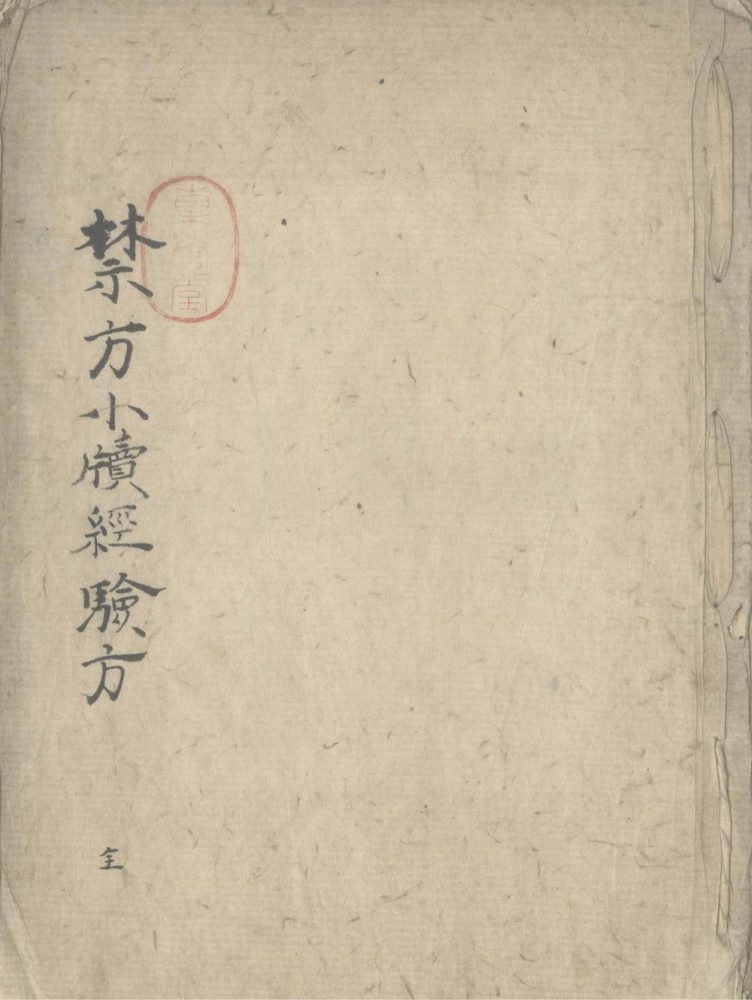 禁方小牘經驗方
全